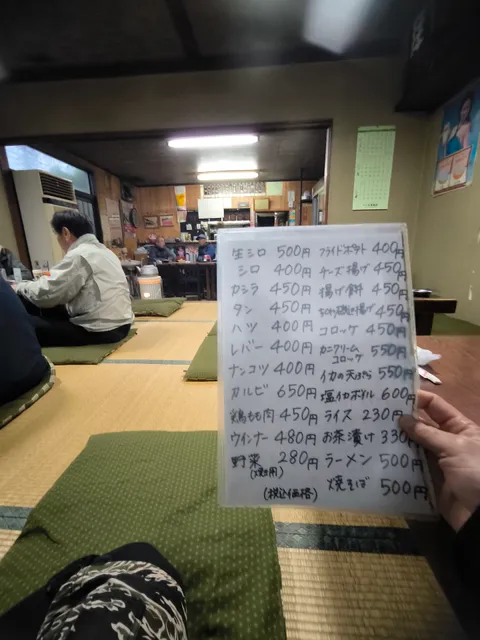 生シロ 500円
シロ 400円
カシラ 450円
タン 450円
ハツ 400円
レバー 400円
ナンコツ 400円
カルビ 650円
鶏もも肉 450円
ウインナー 480円
野菜 280円
(焼き用)
(税込価格)
フライドポテト 400円
チーズ揚げ 450円
揚げ餅 450円
ちくわ磯辺揚げ 450円
コロッケ 450円
カニクリーム
コロッケ 550円
イカの天ぷら 550円
塩イカボイル 600円
ライス 230円
お茶漬け 330
ラーメン 500円
焼きそば 500円